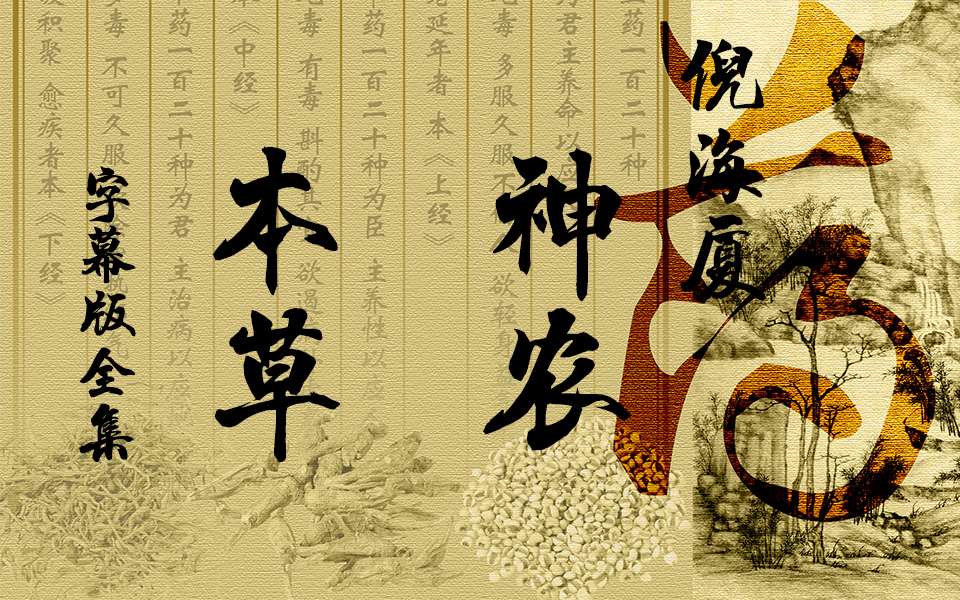 倪海厦
神农
本草
字幕版全集
药一百二十种
为君 主养命以应
毒 多服久服不 欲轻身
延年者 本《上经》
药一百二十种为臣 主养性以应
毒 有毒 斟酌其 欲遏
本《中经》
药一百二十种为君 主治病以应
毒 不可久服
积聚 愈疾者本《下经》